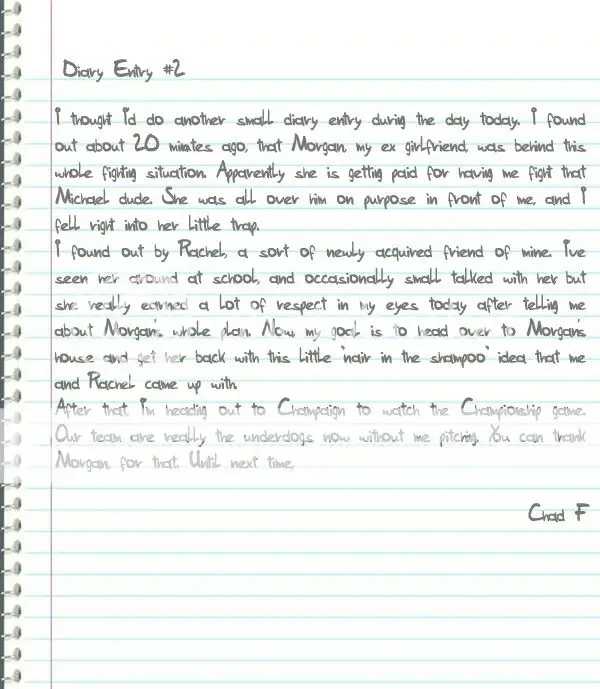 Diary Entry #2
I thought I'd do another small diary entry during the day today. I found
out about 20 minutes ago, that Morgan, my ex girlfriend, was behind this
whole fighting situation. Apparently she is getting paid for having me fight that
Michael dude. She was all over him on purpose in front of me, and I
fell right into her little trap.
I found out by Rachel, a sort of newly acquired friend of mine. I've
seen her around at school, and occasionally small talked with her but
she really earned a lot of respect in my eyes today after telling me
about Morgan's whole plan. Now, my goal is to head over to Morgan's
house and get her back with this little 'nair in the shampoo' idea that me
and Rachel came up with.
After that, I'm heading out to Champaign to watch the Championship game.
Our team are really the underdogs now without me pitching. You can thank
Morgan for that. Until next time.
Chad F